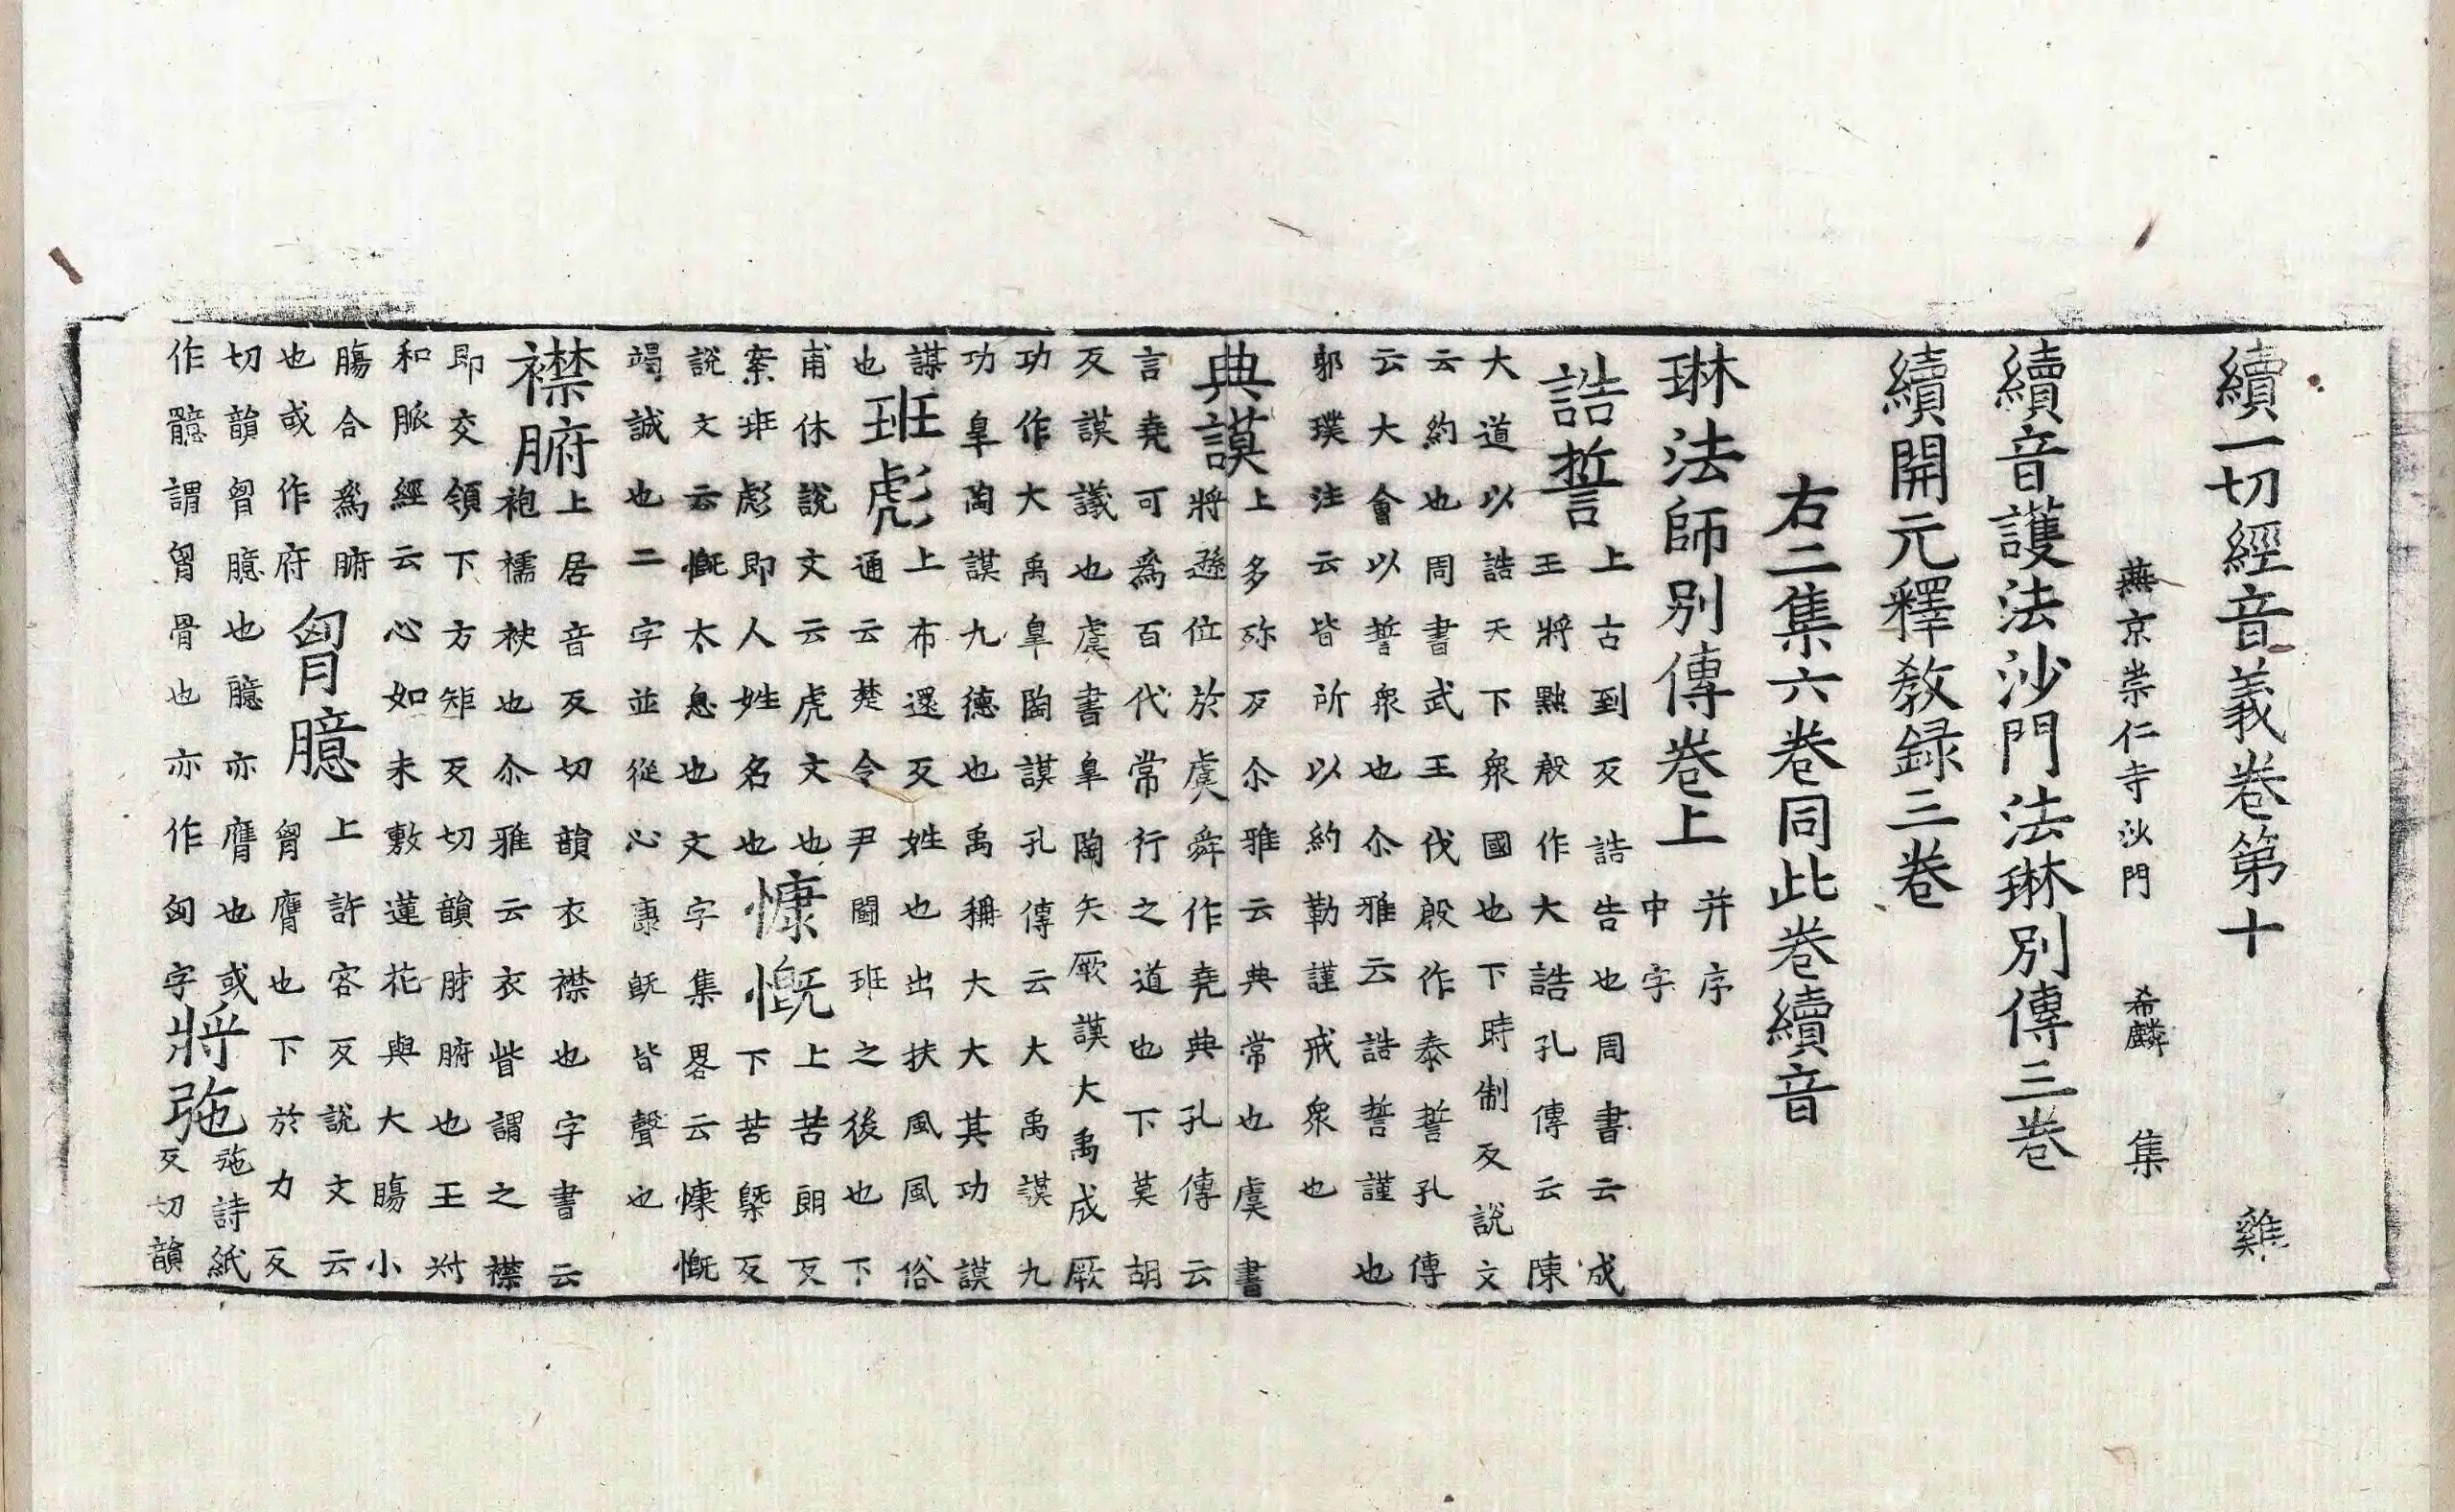 續一切經音義卷第十 雞
燕京崇仁寺沙門 希麟 集
續音護法沙門法琳別傳三卷
續開元釋教録三卷
右二集六卷同此卷續音
琳法師別傳卷上 并序 中字
誥誓 上古到反誥告也周書云成
王將黜殷作大誥孔傳云陳
大道以誥天下衆國也下時制反説文
云約也周書武王伐殷作泰誓孔傳
云大會以誓衆也尒雅云誥誓謹也
郭璞注云皆所以約勒謹戒衆也
典謨 上多殄反尒雅云典常也虞書
將遜位於虞舜作堯典孔傳云
言堯可爲百代常行之道也下莫胡
反謨議也虞書皐陶矢厥謨大禹成厥
功作大禹皐陶謨孔傳云大禹謨九
功皐陶謨九德也禹稱大大其功謨
謀也 班彪 上布還反姓也出扶風風俗
通云楚令尹鬬班之後也下
甫休説文云虎文也 慷慨 上苦朗反
案班彪即人姓名也 下苦槩反
説文云慨太息也文字集畧云慷慨
竭誠也二字並從心康旣皆聲也
襟腑 上居音反切韻衣襟也字書云
袍襦袂也尒雅云衣眥謂之襟
即交領下方矩反切韻胕腑也王叔
和脈經云心如未敷蓮花與大膓小
膓合爲腑 胷臆 上許容反説文云
也或作府 胷膺也下於力反
切韻胷臆也臆亦膺也或
作髓謂胷骨也亦作匈字 將弛 弛詩紙
反切韻